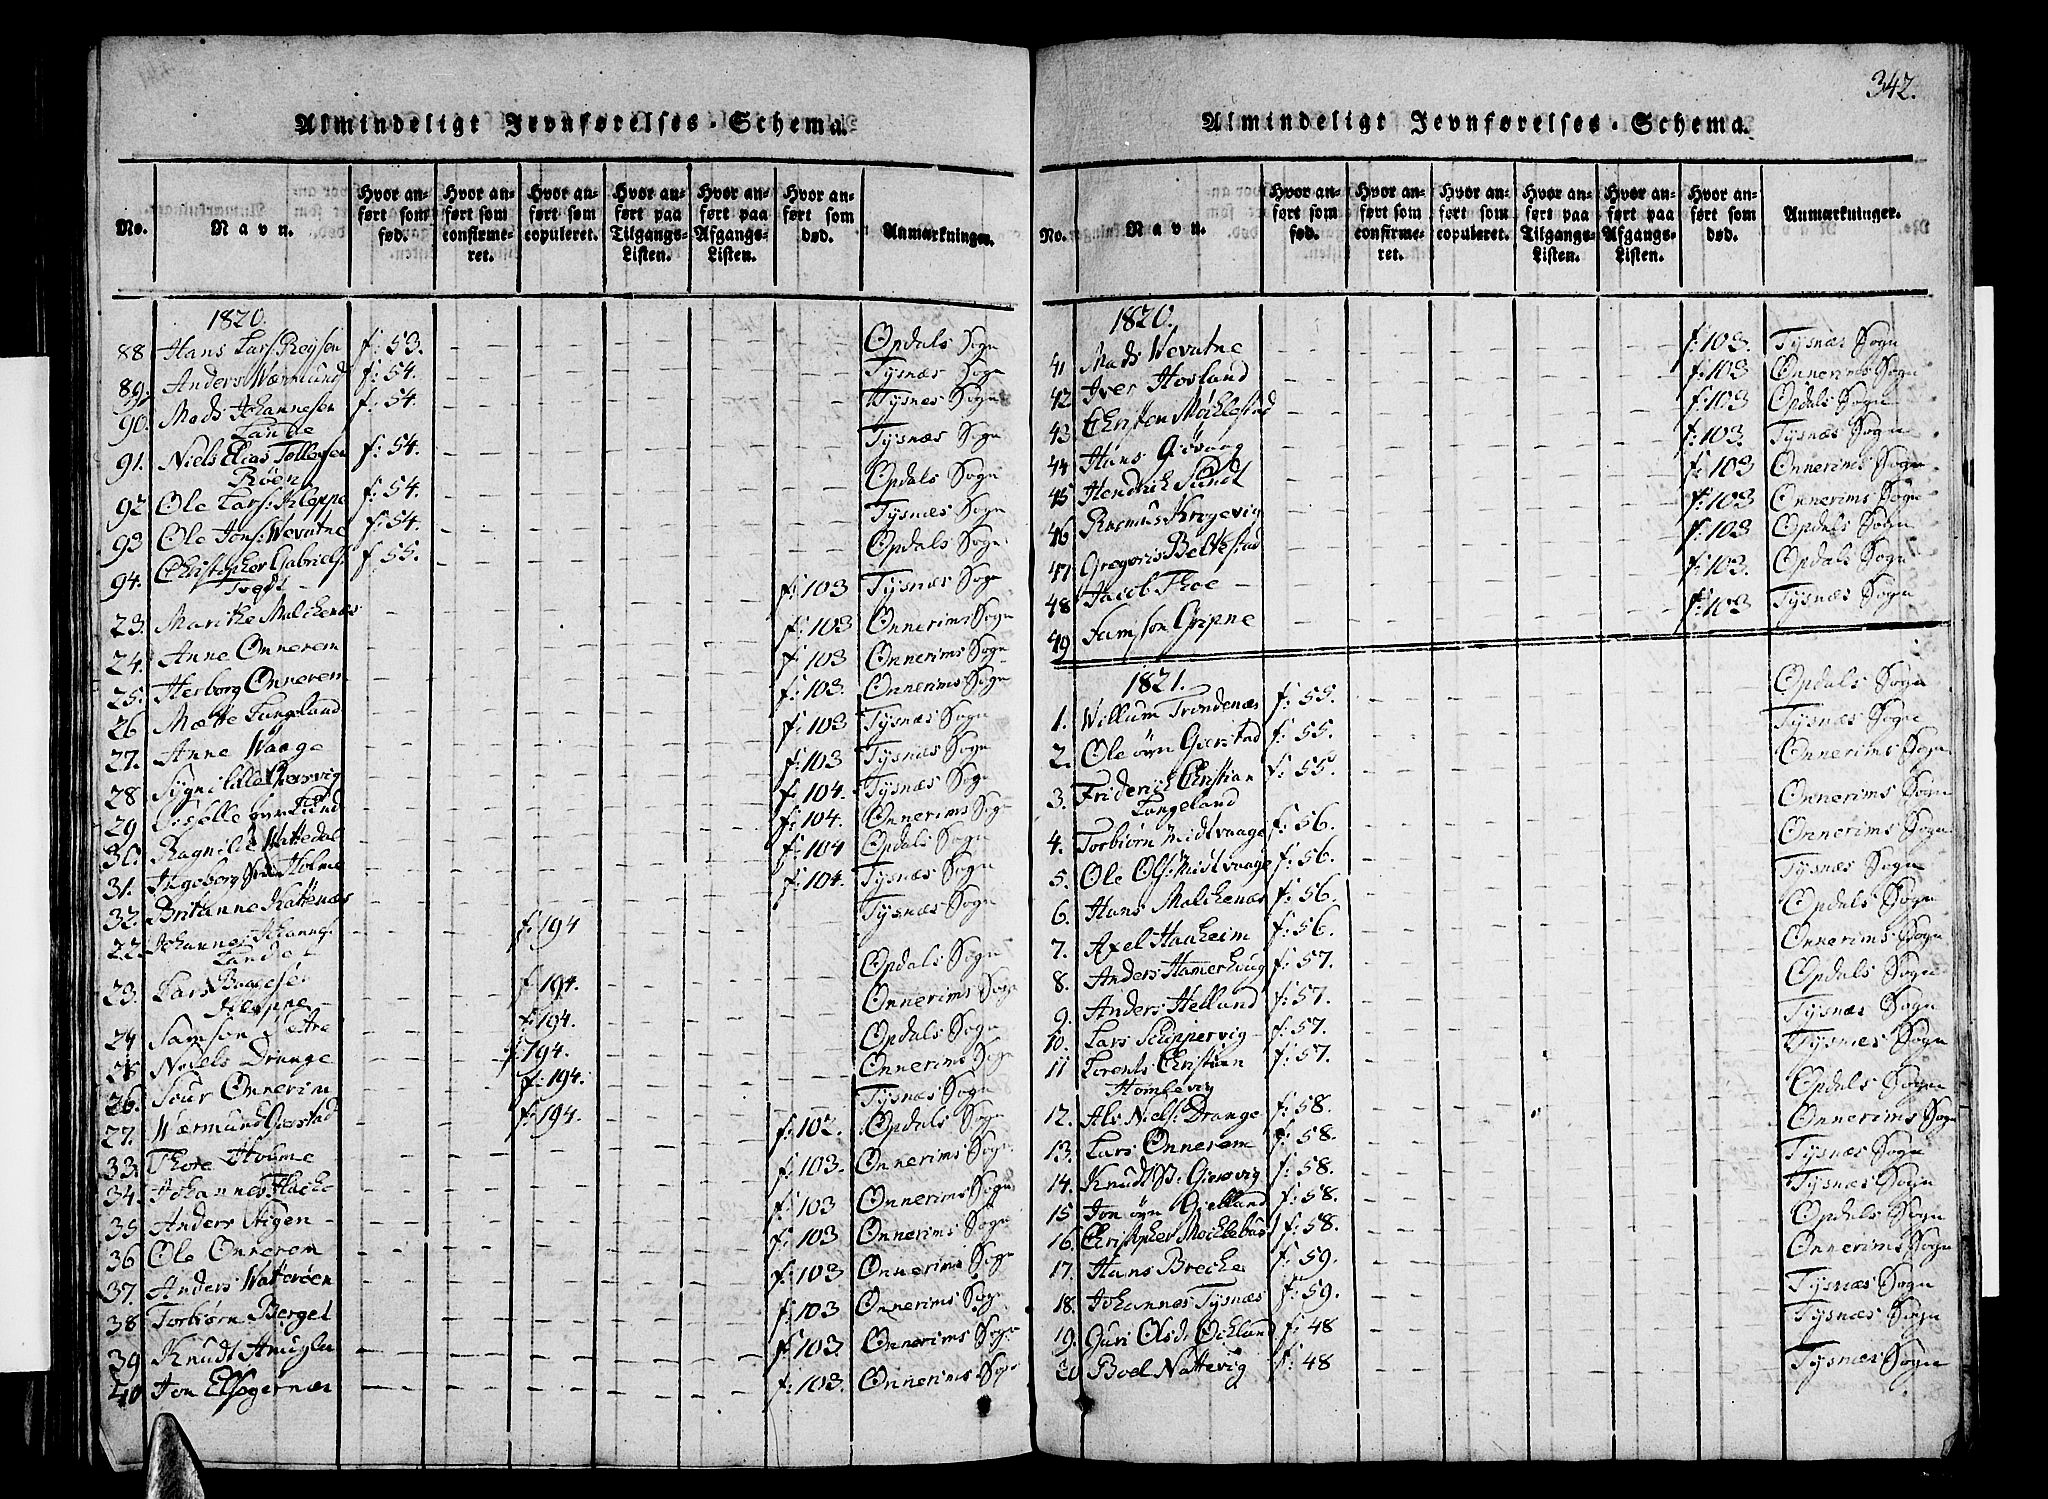 Almindeligt Jevnførelses-Schema.
No. Navn. Hvor anført som fød. Hvor anført som confirmeret. Hvor anført som copuleret. Hvor anført paa Tilgangs-Listen. Hvor anført paa Afgangs-Listen. Hvor anført som død. Anmærkninger.
1820.
88 Hans Lars: Reysen f: 53. Opdals Sogn
89 Anders Wærmunds f: 54. Tysnæs Sogn
90. Mads Johannesen f: 54. Tysnes Sogn
Lande
91. Niels Elias Tollefsen f: 54. Tysnæs Sogn
Røen
92 Ole Lars: Kleppe f: 54. Opdals Sogn
93 Ole Jons: Wevatne f: 54. Tysnæs Sogn
94. Christopher Gabriels: f: 55. Opdals Sogn
Tvedt
23. Marithe Malchenæs f: 103 Tysnæs Sogn
24. Anne Onnerem f: 103 Onnerims Sogn
25. Herborg Onnerem f: 103 Onnerims Sogn
26 Mætte Tungeland f: 103. Onnerims Sogn
27. Anne Waage f: 103 Tysnæs Sogn
28 Sygni lille f: 103 Tysnæs Sogn
29 f: 104. Tysnæs Sogn
30 Ragnilde Wattedal f: 104. Onnerims Sogn
31. Ingeborg Holme f: 104 Opdals Sogn
32. Britanne Kattenæs f: 104. Tysnæs Sogn
22 Johannes Johannes: f: 194 Tysnæs Sogn
Lande
23. Lars f: 194. Opdals Sogn
Kleppe
24 Samson Sætre f: 194. Onnerims Sogn
25 Niels Drange f: 194. Opdals Sogn
26. Siur Onnerim f: 194. Onnerims Sogn
27. Wærmund Gierstad f: 194. Tysnæs Sogn
33. Thore Houme f: 102. Opdals Sogn
34. Johannes Hacke f: 103. Onnerims Sogn
35 Anders Stigen f: 103 Onnerims Sogn
36 Ole Onnerem f: 103 Onnerims Sogn
37. Anders Watterøen f: 103 Onnerims Sogn
38 Torbiørn Berget f: 103 Onnerims Sogn
39 Knudt Hauglen f: 103 Onnerims Sogn
40 Jon Elsogernæs f: 103. Onnerims Sogn
342.
Almindeligt Jevnførelses-Schema.
No. Navn. Hvor anført som fød. Hvor anført som confirmeret. Hvor anført som copuleret. Hvor anført paa Tilgangs-Listen. Hvor anført paa Afgangs-Listen. Hvor anført som død. Anmærkninger.
1820.
41 Mads Wevatne f: 103. Tysnæs Sogn
42 Iver Hovland f: 103 Onnerims Sogn
43 Christen Møchlestad f: 103 Opdals Sogn
44 Hans Giøvaag f: 103. Tysnæs Sogn
45 Hendrich Sundt f: 103 Onnerims Sogn
46 Rasmus Krogevig f: 103 Onnerims Sogn
47 Gregoris Beltestad f: 103 Opdals Sogn
48 Jacob Thoe f: 103. Opdals Sogn
49 Samson Gripne f: 103 Tysnæs Sogn
1821.
1. Willum Trondenæs f: 55. Opdals Sogn
2. Ole øvn Gierstad f: 55. Tysnæs Sogn
3. Friderich Christian f: 55. Onnerims Sogn
Tungeland
4. Torbiørn Midtvaage f: 56. Onnerims Sogn
5. Ole Ols: Midtvaage f: 56. Onnerims Sogn
6. Hans Malchenæs f: 56. Tysnæs Sogn
7. Axel Haaheim f: 56. Opdals Sogn
8. Anders Hamerhoug f: 57. Onnerims Sogn
9. Anders Helland f: 57. Opdals Sogn
10. Lars Schippervig f: 57. Tysnæs Sogn
11 Lorents Christian f: 57. Tysnæs Sogn
Homlevig
12. Als Niels: Drange f: 58. Opdals Sogn
13. Lars Onnerem f: 58. Onnerims Sogn
14. Knudt S: Giersvig f: 58. Tysnæs Sogn
15 Jon øvn Gielland f: 58. Tysnæs Sogn
16. Christopher Møchlebus f: 58. Opdals Sogn
17. Hans Breche f: 59. Onnerims Sogn
18. Johannes Tysnæs f: 59. Tysnæs Sogn
19. Guri Olsd: Ochland f: 48 Tysnæs Sogn
20 Boel Nattevig f: 48 Tysnæs Sogn